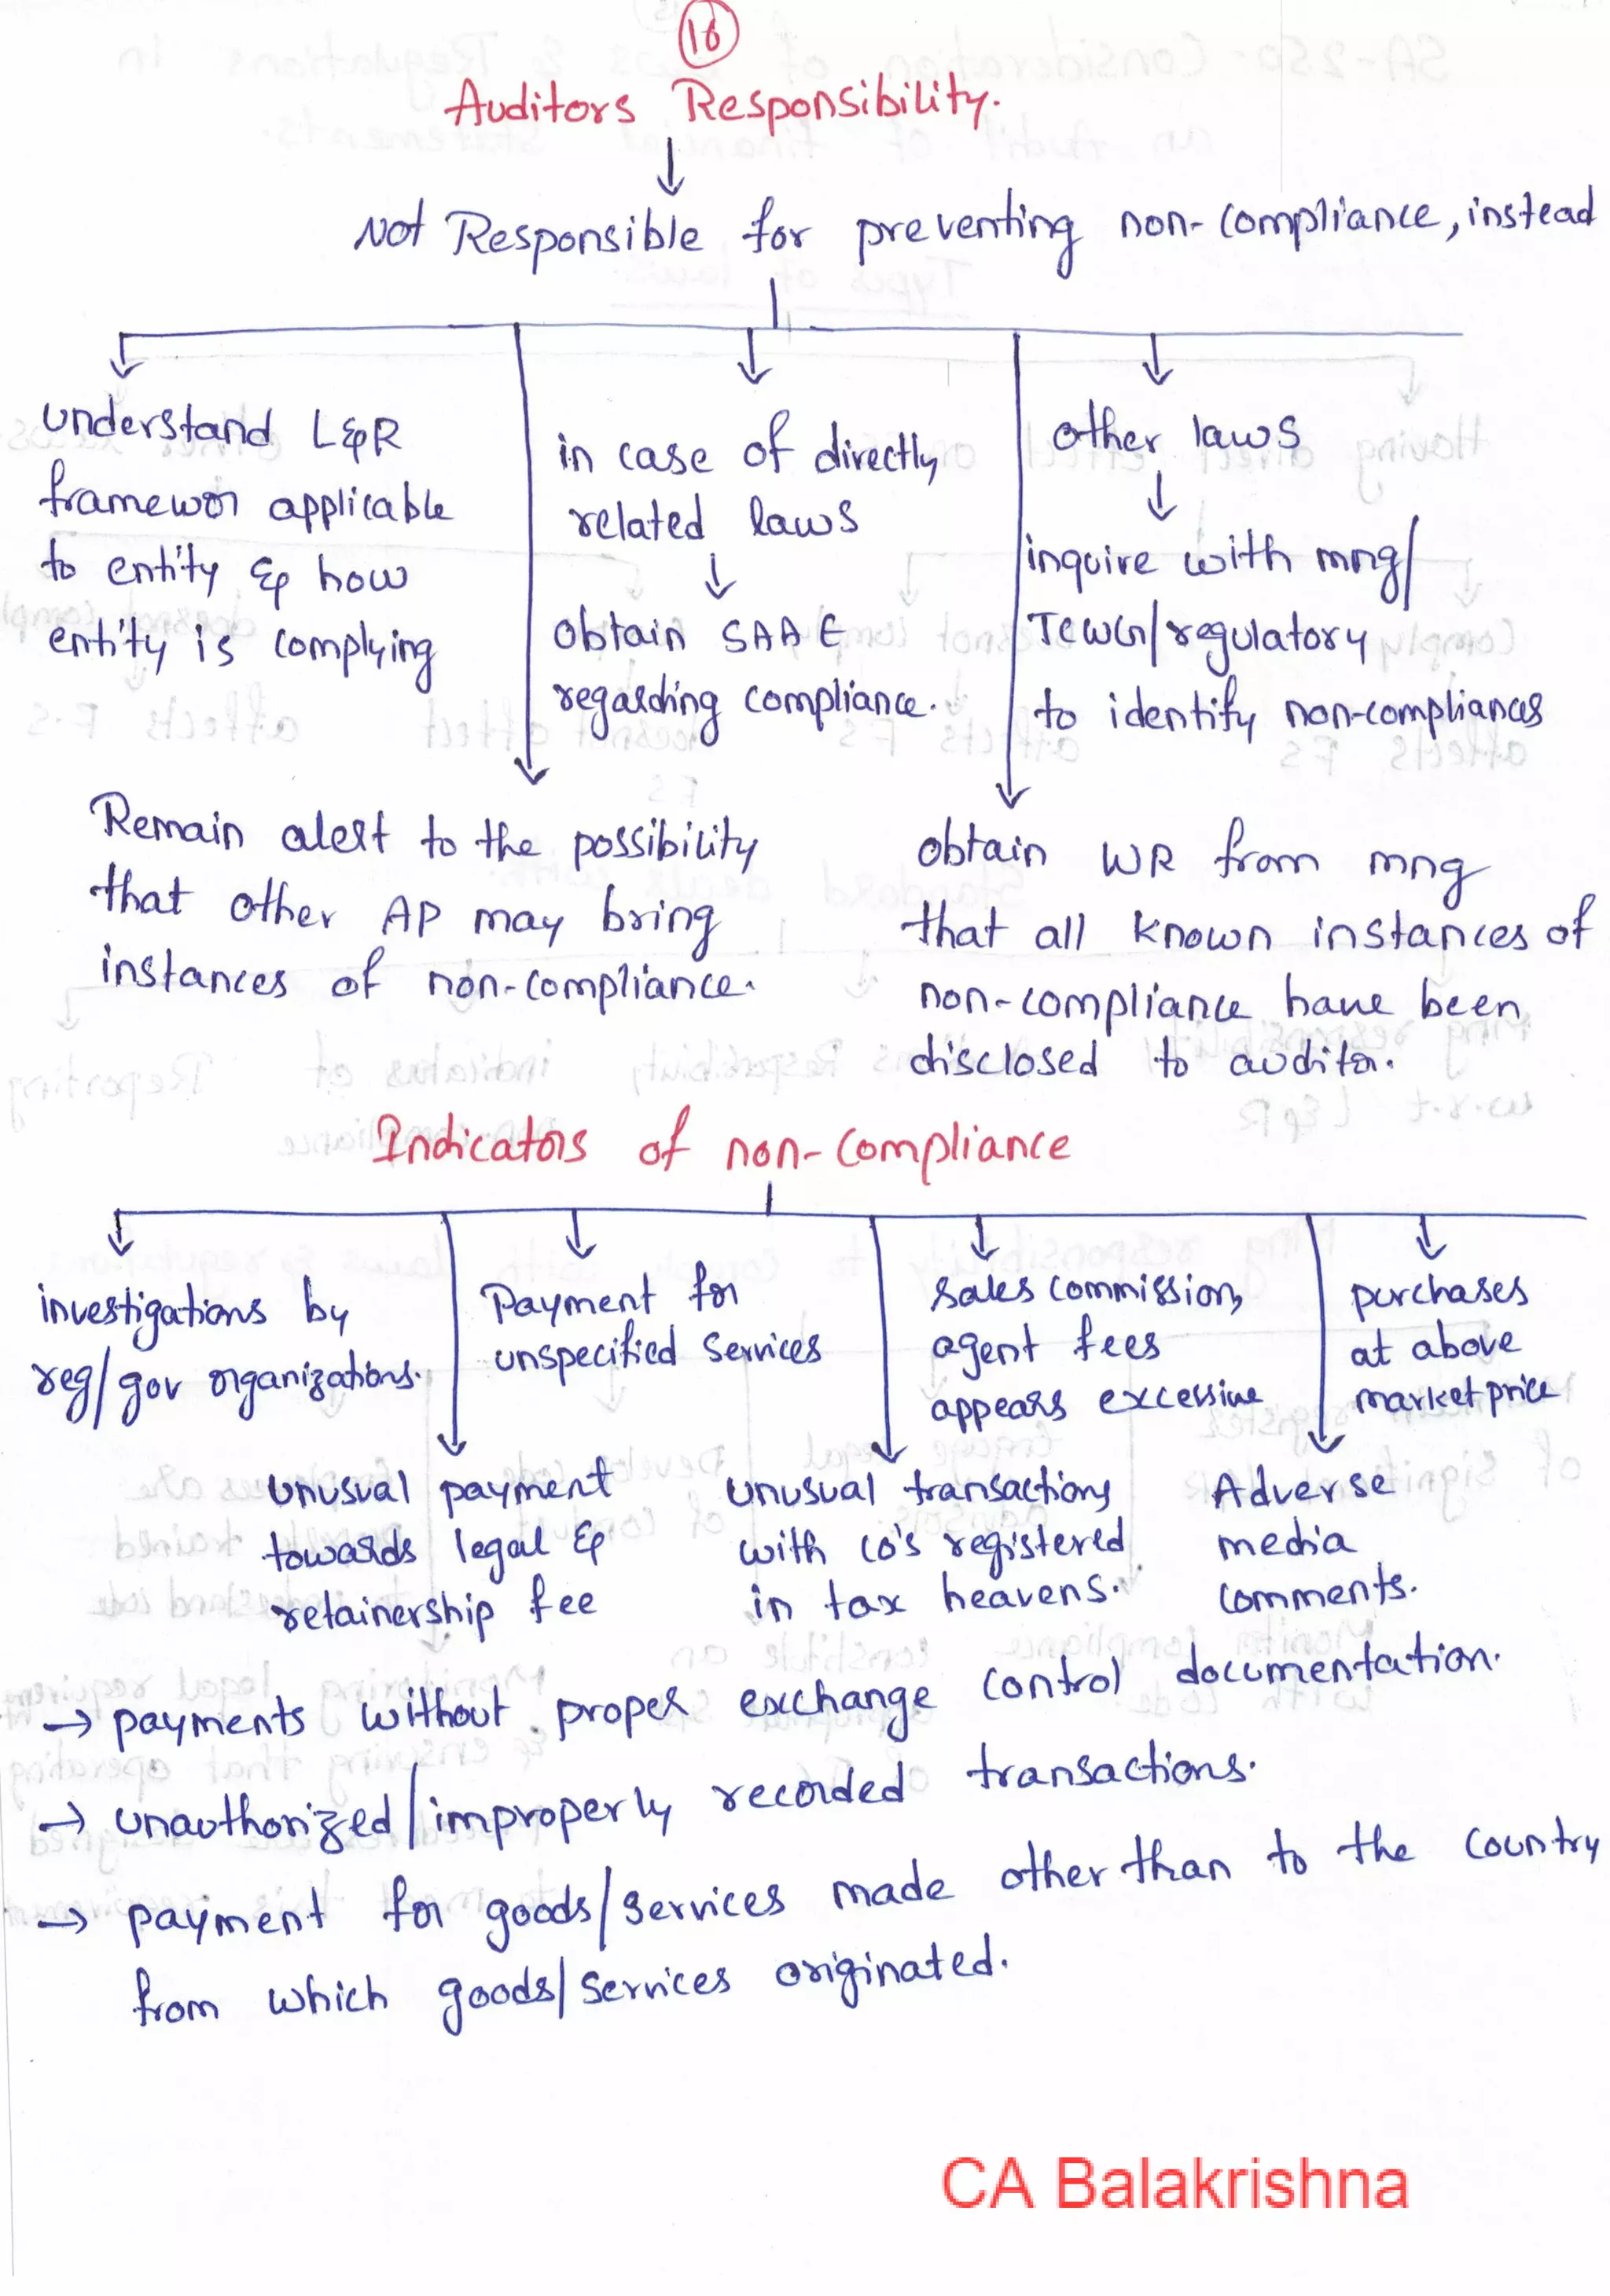 16
Auditors Responsibility.
Not Responsible for preventing non-compliance, instead
understand L&R
framewor applicable
to entity & how
entity is complying
in case of directly
related laws
obtain SAAE
regarding compliance.
other laws
inquire with mng/
TCWG/regulatory
to identify non-compliances
Remain alert to the possibility
that other AP may bring
instances of non-compliance.
obtain WR from mng
that all known instances of
non-compliance have been
disclosed to auditor.
Indicators of non-compliance
investigations by
reg/gov organizations.
Payment for
unspecified services
Sales commission,
agent fees
appears excessive
purchases
at above
market price
unusual payment
towards legal &
retainership fee
unusual transactions
with co's registered
in tax heavens.
Adverse
media
comments.
→ payments without proper exchange control documentation.
→ unauthorized/improperly recorded transactions.
→ payment for goods/services made other than to the country
from which goods/services originated.
CA Balakrishna